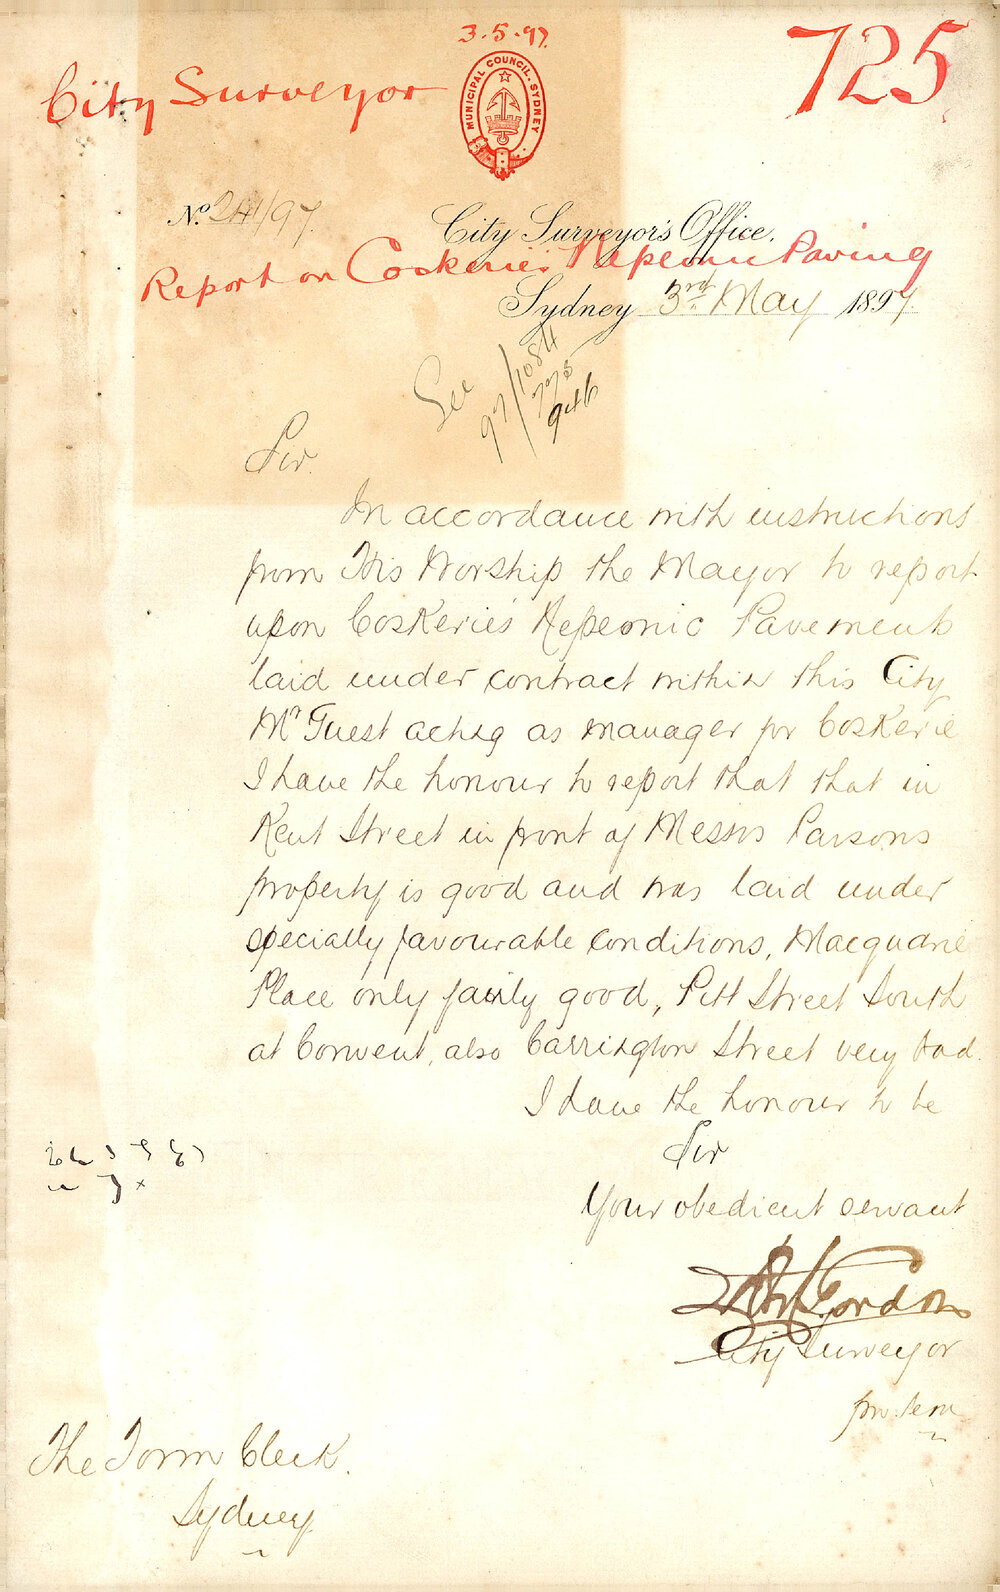 3.5.97.
725
City Surveyor
MUNICIPAL COUNCIL. SYDNEY
No. 241/97.
City Surveyor's Office.
Report on Coskerie's Nepeonic Paving
Sydney 3rd May 1897.
See 97/1084
773
946
Sir.
In accordance with instructions
from His Worship the Mayor to report
upon Coskerie's Nepeonic Pavements
laid under contract within this City
Mr Guest acting as manager for Coskerie
I have the honour to report that that in
Kent Street in front of Messrs Parsons
property is good and was laid under
specially favourable conditions, Macquarie
Place only fairly good, Pitt Street South
at Convent, also Carrington Street very bad.
I have the honour to be
Sir
Your obedient servant
Gordon
City Surveyor
pro. tem
The Town Clerk.
Sydney.